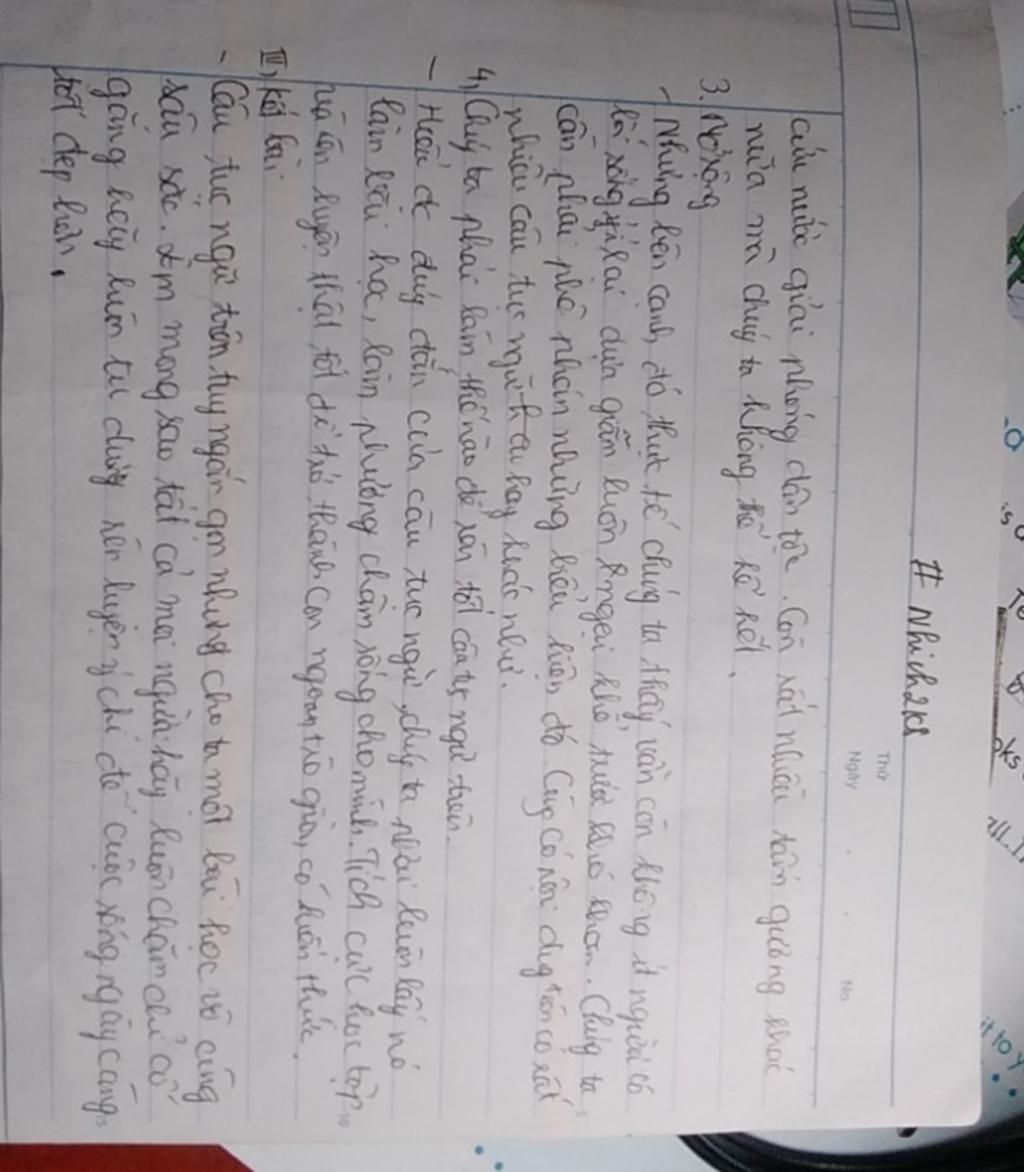 # Nhich2k8
Thứ
Ngày . . No
cứu nước giải phóng dân tộc. Còn rất nhiều tấm gương khác
nữa mà chúng ta không thể kể hết.
3. Mở rộng
- Nhưng bên cạnh đó, thực tế chúng ta thấy vẫn còn không ít người có
lối sống ỷ lại dựa gẫm luôn ngại khổ trước khó khăn. Chúng ta
cần phải phê phán những biểu hiện đó. Cũng có nội dung trên có rất
nhiều câu tục ngữ hay khác như.
4, Chúng ta phải làm thế nào để rèn tốt câu tục ngữ trên.
- Hiểu đc đúng đắn của câu tục ngữ, chúng ta phải luôn lấy nó
làm bài học, làm phương châm sống cho mình. Tích cực học tập
rèn luyện thật tốt để trở thành con ngoan trò giỏi, có kiến thức.
III, kết bài:
- Câu tục ngữ trên tuy ngắn gọn nhưng cho ta một bài học vô cùng
sâu sắc. Em mong sao tất cả mọi người hãy luôn chăm chỉ cố
gắng hãy luôn tu dưỡng rèn luyện ý chí để cuộc sống ngày càng
tốt đẹp hơn.